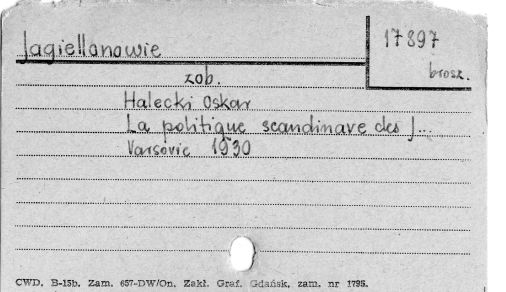 Jagiellonowie
17897
brosz.
zob.
Halecki Oskar
La politique scandinave des J...
Varsovie 1930
CWD. B-15b. Zam. 657-DW/On. Zakł. Graf. Gdańsk, zam. nr 1795.